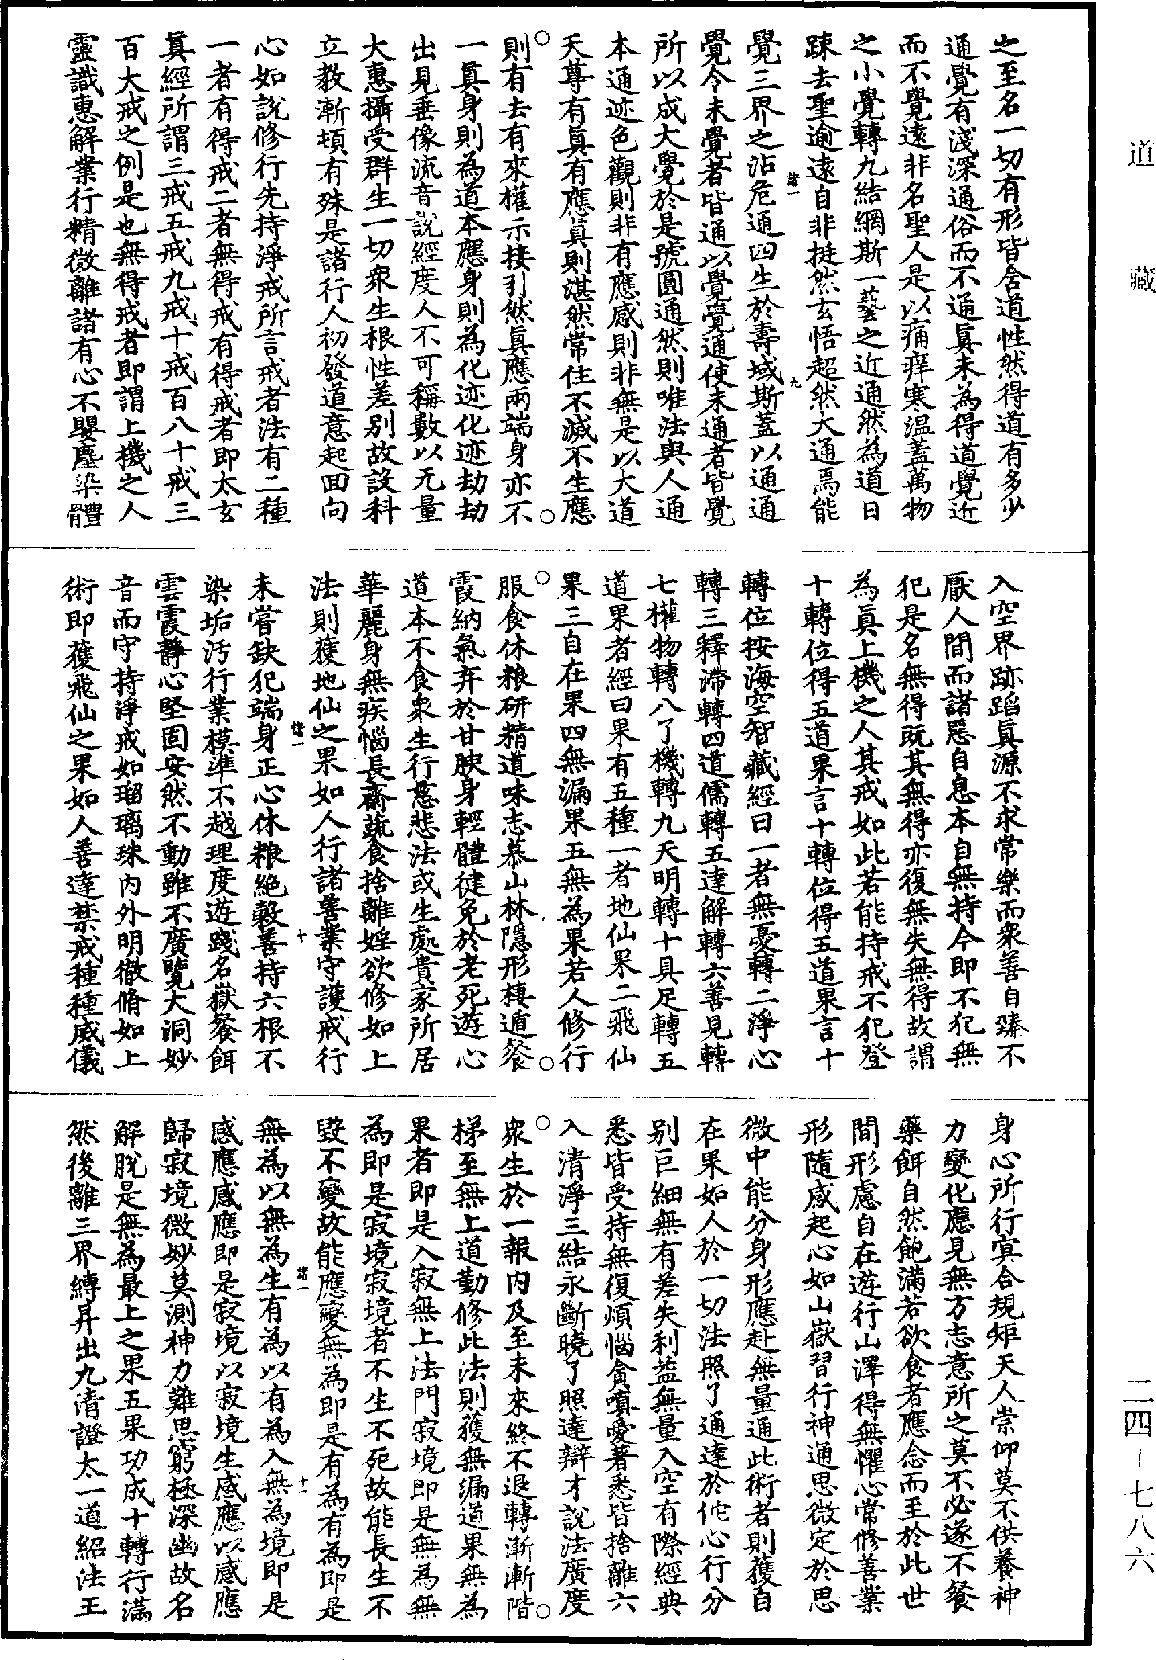 之至名一切有形皆含道性然得道有多少
通覺有淺深通俗而不通眞未為得道覺近
而不覺遠非名聖人是以痛痒寒温蓋萬物
之小覺轉九結網斯一藝之近通然為道日
踈去聖逾遠自非挺然玄悟超然大通焉能
覺三界之沾危通四生於壽域斯蓋以通通
覺令未覺者皆通以覺覺通使未通者皆覺
所以成大覺於是號圓通然則唯法與人通
本通迹色觀則非有應感則非無是以大道
天尊有眞有應眞則湛然常住不滅不生應
則有去有來權示接引然眞應兩端身亦不
一眞身則為道本應身則為化迹化迹劫劫
出見垂像流音說經度人不可稱數以无量
大惠攝受群生一切衆生根性差別故設科
立教漸頓有殊是諸行人初發道意起回向
心如說修行先持淨戒所言戒者法有二種
一者有得戒二者無得戒有得戒者即太玄
眞經所謂三戒五戒九戒十戒百八十戒三
百大戒之例是也無得戒者即謂上機之人
靈識惠解業行精微離諸有心不嬰塵染體
入空界跡蹈眞源不求常樂而衆善自臻不
厭人間而諸惡自息本自無持今即不犯無
犯是名無得既其無得亦復無失無得故謂
為眞上機之人其戒如此若能持戒不犯登
十轉位得五道果言十轉位得五道果言十
轉位按海空智藏經曰一者無憂轉二淨心
轉三釋滯轉四道儒轉五達解轉六善見轉
七權物轉八了機轉九天明轉十具足轉五
道果者經曰果有五種一者地仙果二飛仙
果三自在果四無漏果五無為果若人修行
服食休粮研精道味志慕山林隱形棲遁餐
霞納氣弃於甘腴身輕體徤免於老死遊心
道本不食衆生行慈悲法或生處貴家所居
華麗身無疾惱長齋蔬食捨離婬欲修如上
法則獲地仙之果如人行諸善業守護戒行
未嘗缺犯端身正心休粮絶榖善持六根不
染垢汚行業模準不越理度遊踐名嶽餐餌
雲霞靜心堅固安然不動雖不廣覽大洞妙
音而守持淨戒如瑠璃珠内外明徹脩如上
術即獲飛仙之果如人善達禁戒種種威儀
身心所行㝠合規矩天人崇仰莫不供養神
力變化應見無方志意所之莫不必遂不餐
藥餌自然飽滿若欲食者應念而至於此世
間形慮自在遊行山澤得無懼心常修善業
形隨感起心如山嶽習行神通思微定於思
微中能分身形應赴無量通此術者則獲自
在果如人於一切法照了通達於佗心行分
別巨細無有差失利益無量入空有際經典
悉皆受持無復煩惱貪嗔愛著悉皆捨離六
入清淨三結永斷曉了照達辯才說法廣度
衆生於一報内及至未來終不退轉漸漸階
梯至無上道勤修此法則獲無漏道果無為
果者即是入寂無上法門寂境即是無為無
為即是寂境寂境者不生不死故能長生不
毀不變故能應變無為即是有為有為即是
無為以無為生有為以有為入無為境即是
感應感應即是寂境以寂境生感應以感應
歸寂境微妙莫測神力難思窮極深幽故名
解脫是無為最上之果五果功成十轉行滿
然後離三界縛昇出九清證太一道紹法王
道藏
二四－七八六